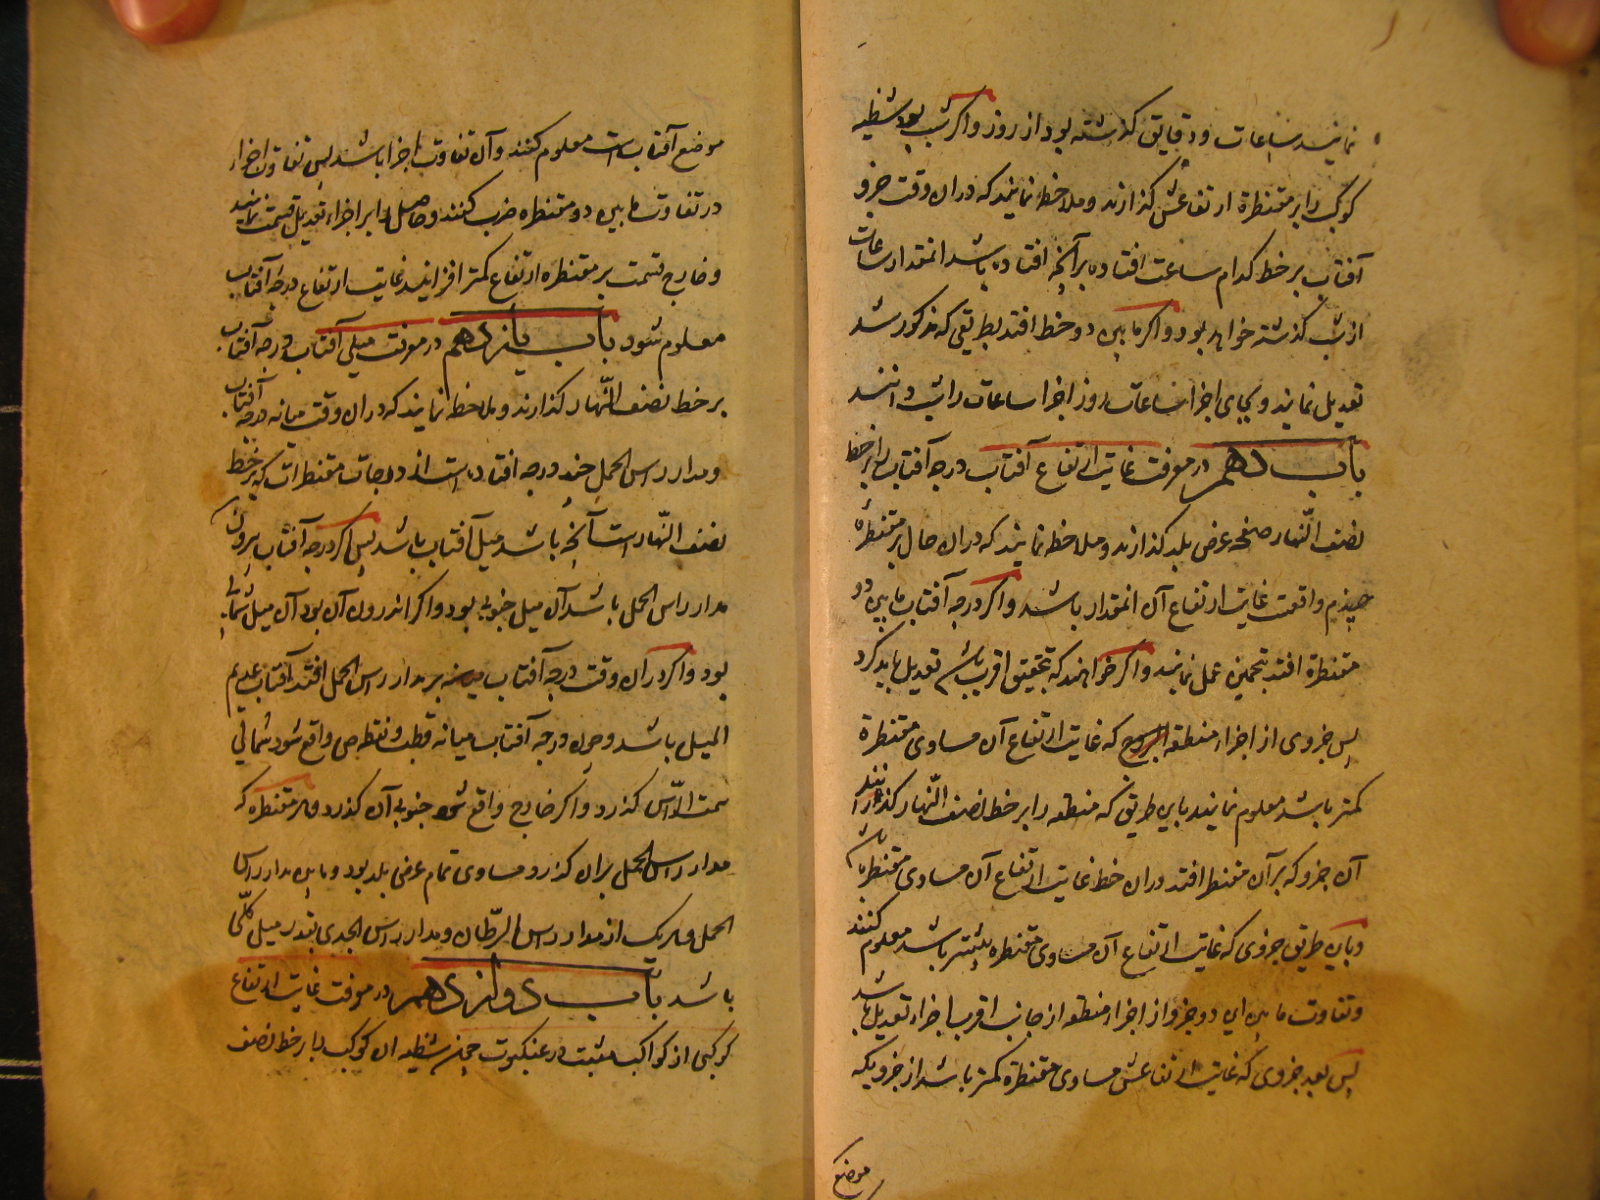 نمایند ساعات و دقایق گذشته بود از روز و اگر شب بود شظیه
کوکب را بر مقنطرهٔ ارتفاعش گذارند و ملاحظه نمایند که در ان وقت جزو
آفتاب بر خط کدام ساعت افتاده بر آنچه افتاده باشد انمقدار ساعات
از شب گذشته خواهد بود و اگر مابین دو خط افتد بطریقی که مذکور شد
تعدیل نمایند و بجای اجزا ساعات روز اجزا ساعات را شب دانند
باب دهم در معرفت غایت ارتفاع آفتاب درجه آفتاب را بر خط
نصف النّهار صفحه عرض بلد گذارند و ملاحظه نمایند که در ان حال بر مقنطرهٔ
چندم واقعست غایت ارتفاع آن انمقدار باشد و اگر درجه آفتاب مابین دو
مقنطرة افتد بتخمین عمل نمایند و اگر خواهند که بتحقیق اقرب باشد تعدیل باید کرد
پس جزوی از اجزاء منطقه البروج که غایت ارتفاع آن مساوی مقنطرة
کمتر باشد معلوم نمایند باین طریق که منطقه را بر خط نصف النّهار گذرانند
آن جزو که بر آن مقنطره افتد در ان خط غایت ارتفاع آن مساوی مقنطره باشد
و باین طریق جزوی که غایت ارتفاع آن مساوی مقنطره بیشتر باشد معلوم کنند
و تفاوت مابین این دو جزو از اجزاء منطقه از جانب اقرب اجزاء تعدیل باشد
پس بعد جزوی که غایت ارتفاعش مساوی مقنطرة کمتر باشد از جزویکه
موضع
موضع آفتاب است معلوم کنند و آن تفاوت اجزا باشد پس تفاوت اجزاء
در تفاوت مابین دو مقنطره ضرب کنند و حاصل را بر اجزاء تعدیل قسمت نمایند
و خارج قسمت بر مقنطره ارتفاع کمتر افزایند غایت ارتفاع درجه آفتاب
معلوم شود باب یازدهم در معرفت میل آفتاب درجه آفتاب
بر خط نصف النّهار گذارند و ملاحظه نمایند که در ان وقت میانه درجه آفتاب
و مدار راس الحمل چند درجه افتاده است از درجات مقنطرات که بر خط
نصف النّهار است آنچه باشد میل آفتاب باشد پس اگر درجه آفتاب بیرون
مدار راس الحمل باشد آن میل جنوبی بود و اگر اندرون آن بود آن میل شمالی
بود و اگر در آن وقت درجه آفتاب بر مدار راس الحمل افتد آفتاب عدیم
المیل باشد و چون درجه آفتاب میانه قطب و نقطه ص واقع شود شمالی
سمت الرّاس گذرد و اگر خارج واقع شود جنوبی آن گذرد و هر مقنطره که
مدار راس الحمل بران گذرد مساوی تمام عرض بلد بود و مابین مدار راس
الحمل و هر یک از مدار راس السّرطان و مدار راس الجدی بقدر میل کلّی
باشد باب دوازدهم در معرفت غایت ارتفاع
کوکبی از کواکب مثبت در عنکبوت چون شظیه ان کوکب را بر خط نصف